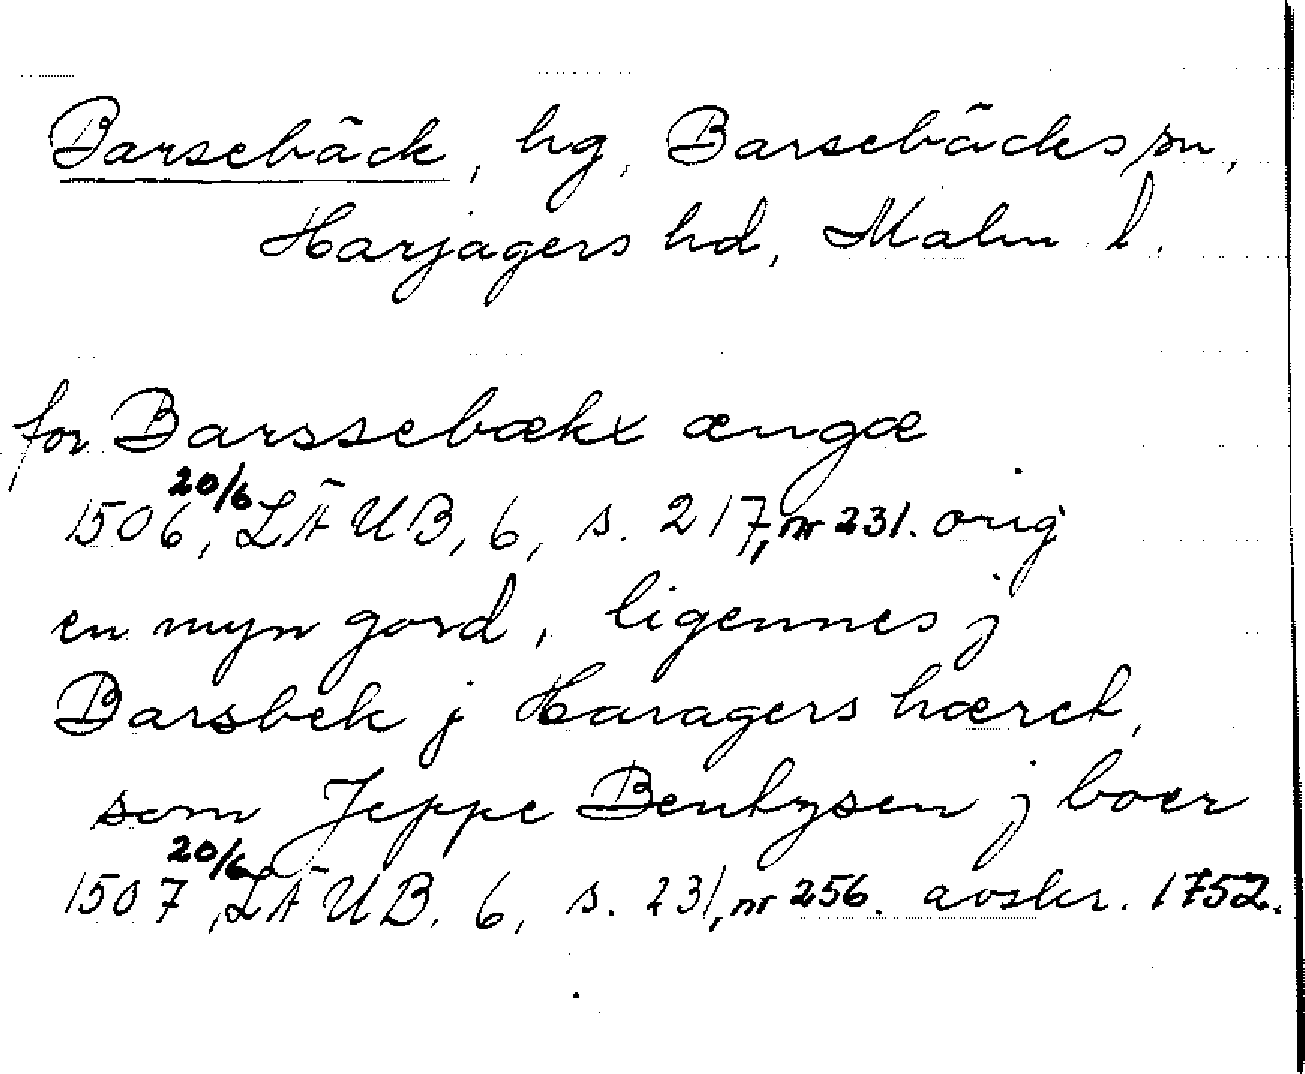 Barsebäck, hg, Barsebäcks sn,
Harjagers hd, Malm l.
for Barssebækx ængæ
1506 20/6, LÄUB, 6, s. 217, nr 231. orig
en myn gord, ligennes j
Barsbek j Haragers hæret,
som Jeppe Bentzsen j boer
1507 20/6, LÄUB. 6, s. 231, nr 256. avskr. 1752.